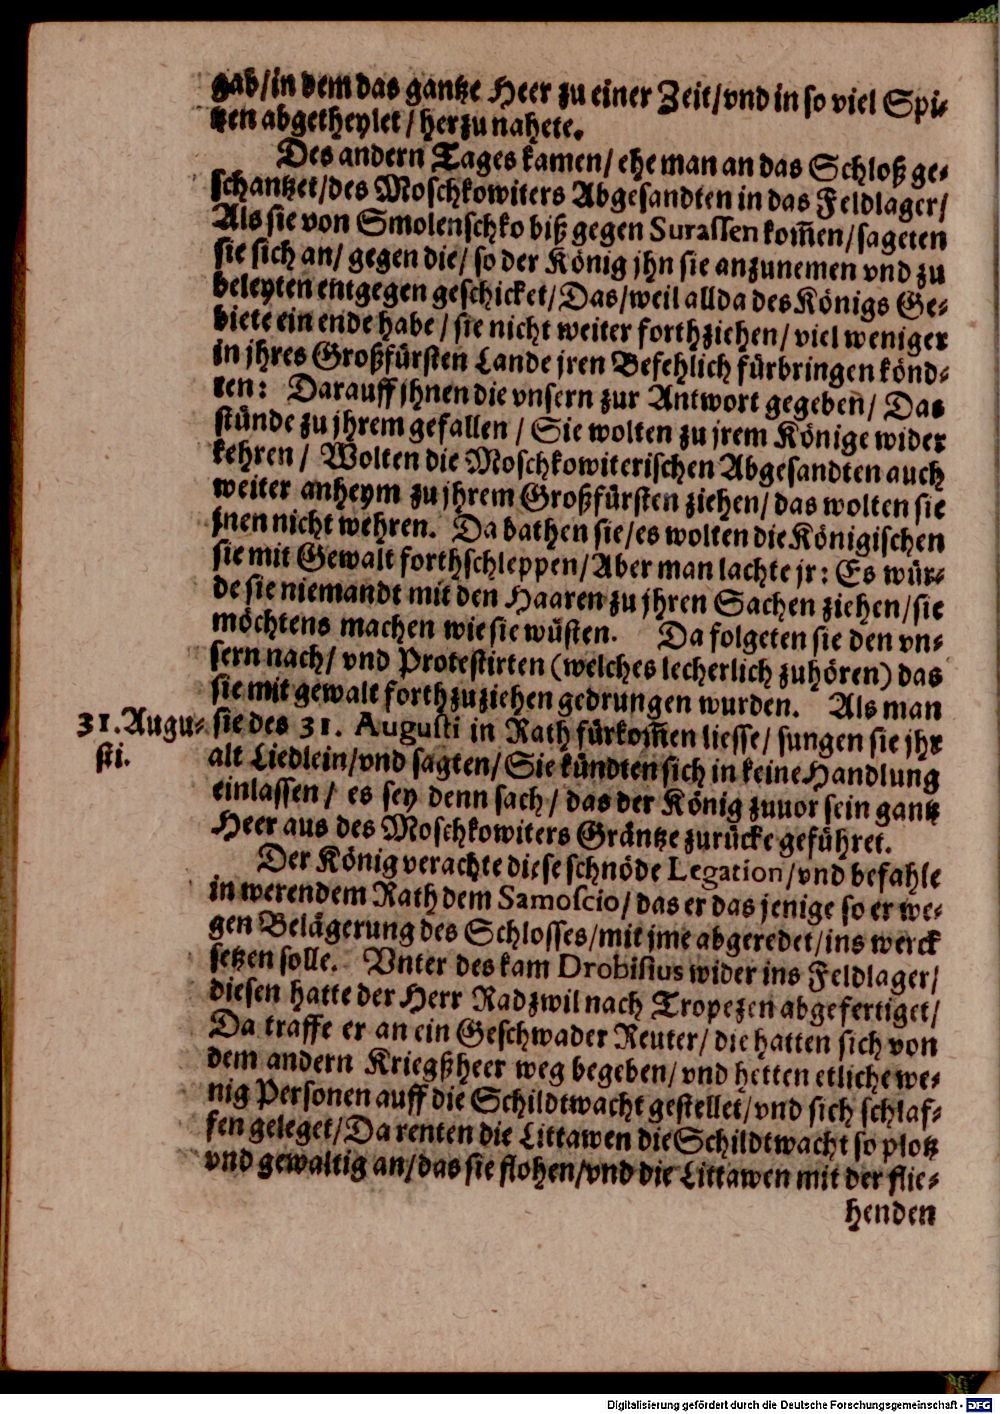 gab/in dem das gantze Heer zu einer Zeit/vnd in so viel Spi-
tzen abgetheylet/herzu nahete.
Des andern Tages kamen/ehe man an das Schloß ge-
schantzet/des Moschkowiters Abgesandten in das Feldlager/
Als sie von Smolenschko biß gegen Surassen kom̃en/sageten
sie sich an/gegen die/so der König jhn sie anzunemen vnd zu
beleyten entgegen geschicket/Das/weil allda des Königs Ge-
biete ein ende habe/sie nicht weiter forthziehen/viel weniger
in jhres Großfürsten Lande jren Befehlich fürbringen könd-
ten: Darauff jhnen die vnsern zur Antwort gegebeñ/Das
stünde zu jhrem gefallen/Sie wolten zu jrem Könige wider
kehren/Wolten die Moschkowiterischen Abgesandten auch
weiter anheym zu jhrem Großfürsten ziehen/das wolten sie
jnen nicht wehren. Da bathen sie/es wolten die Königischen
sie mit Gewalt forthschleppen/Aber man lachte jr: Es wür-
de sie niemandt mit den Haaren zu jhren Sachen ziehen/sie
möchtens machen wie sie wüsten. Da folgeten sie den vn-
sern nach/vnd Protestirten (welches lecherlich zuhören) das
sie mit gewalt forthzuziehen gedrungen wurden. Als man
31. Augu-
sti.
sie des 31. Augusti in Rath fürkom̃en liesse/sungen sie jhr
alt Liedlein/vnd sagten/Sie kündten sich in keine Handlung
einlassen/es sey denn sach/das der König zuuor sein gantz
Heer aus des Moschkowiters Gräntze zurücke geführet.
Der König verachte diese schnöde Legation/vnd befahle
in werendem Rath dem Samoscio/das er das jenige so er we-
gen Belägerung des Schlosses/mit jme abgeredet/ins werck
setzen solle. Vnter des kam Drobisius wider ins Feldlager/
diesen hatte der Herr Radzwil nach Tropezen abgefertiget/
Da traffe er an ein Geschwader Reuter/die hatten sich von
dem andern Kriegßheer weg begeben/vnd hetten etliche we-
nig Personen auff die Schildtwacht gestellet/vnd sich schlaf-
fen geleget/Da renten die Littawen die Schildtwacht so plotz
vnd gewaltig an/das sie flohen/vnd die Littawen mit der flie-
henden
Digitalisierung gefördert durch die Deutsche Forschungsgemeinschaft - DFG